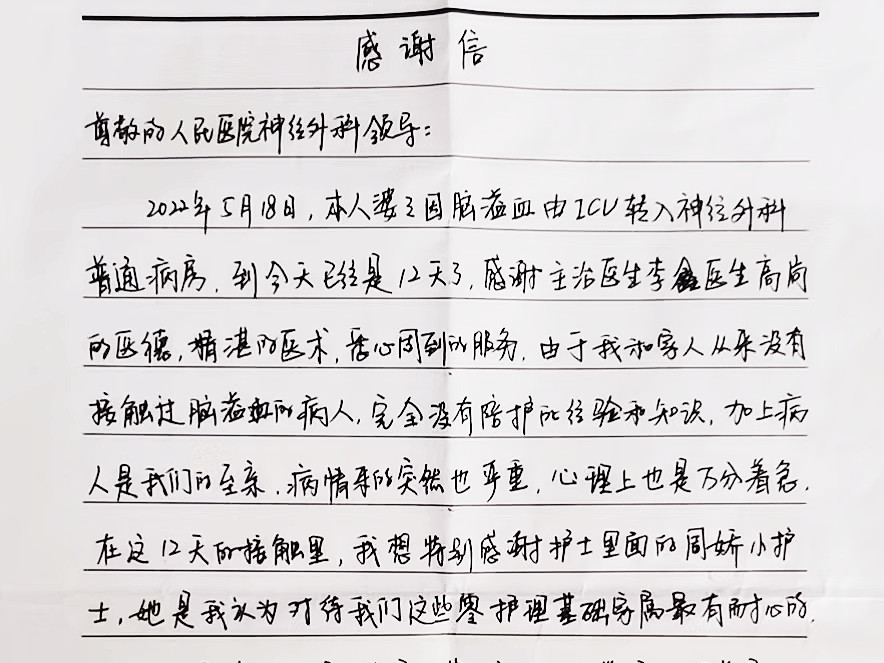 感谢信
尊敬的人民医院神经外科领导：
2022年5月18日，本人婆婆因脑溢血由ICU转入神经外科
普通病房，到今天已经是12天了，感谢主治医生李鑫医生高尚
的医德，精湛的医术，悉心周到的服务，由于我和家人从来没有
接触过脑溢血的病人，完全没有陪护的经验和知识，加上病
人是我们的至亲，病情来的突然也严重，心理上也是万分着急。
在这12天的接触里，我想特别感谢护士里面的周娇小护
士，她是我认为对待我们这些零护理基础家属最有耐心的，